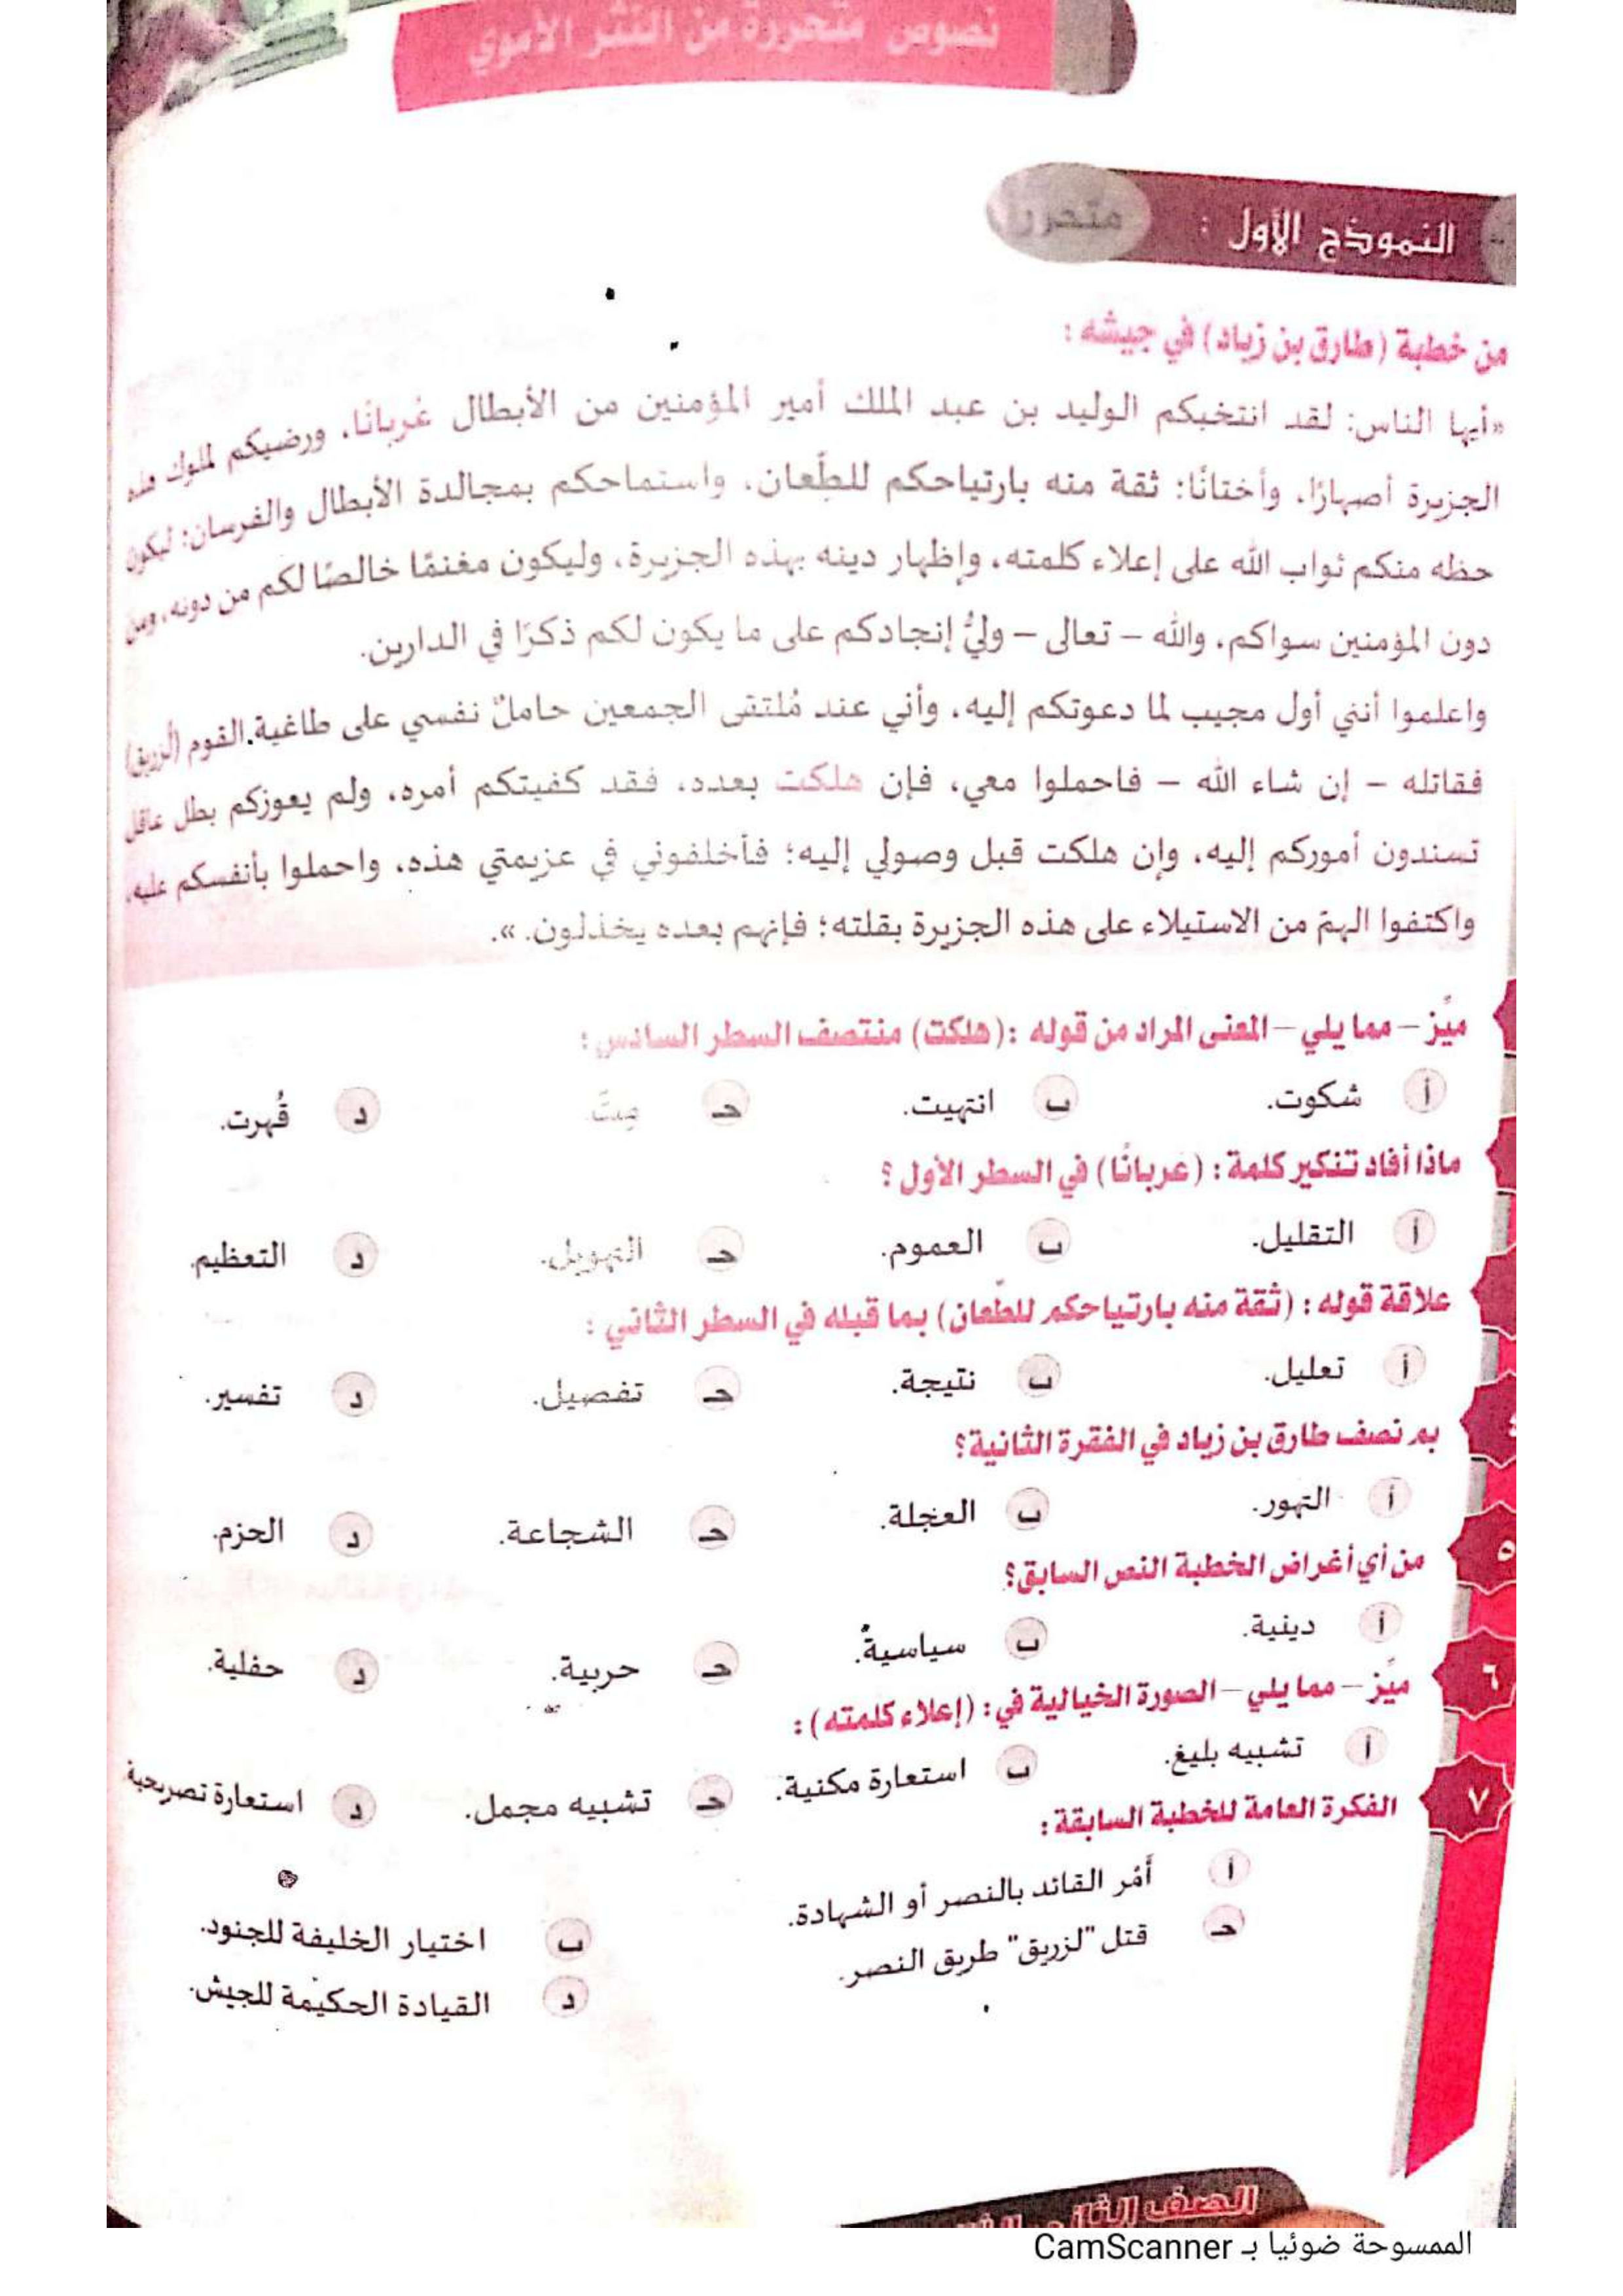 نصوص متحررة من النثر الأموي
النموذج الأول :
متحرر
من خطبة (طارق بن زياد) في جيشه :
«أيها الناس: لقد انتخبكم الوليد بن عبد الملك أمير المؤمنين من الأبطال عُربانًا، ورضيكم لملوك هذه
الجزيرة أصهارًا، وأختانًا: ثقة منه بارتياحكم للطِّعان، واستماحكم بمجالدة الأبطال والفرسان: ليكون
حظه منكم ثواب الله على إعلاء كلمته، وإظهار دينه بهذه الجزيرة، وليكون مغنمًا خالصًا لكم من دونه، ومن
دون المؤمنين سواكم، والله – تعالى – وليُّ إنجادكم على ما يكون لكم ذكرًا في الدارين.
واعلموا أنني أول مجيب لما دعوتكم إليه، وأني عند مُلتقى الجمعين حاملٌ نفسي على طاغية القوم (لزريق)
فقاتله – إن شاء الله – فاحملوا معي، فإن هلكت بعده، فقد كفيتكم أمره، ولم يعوزكم بطل عاقل
تسندون أموركم إليه، وإن هلكت قبل وصولي إليه؛ فأخلفوني في عزيمتي هذه، واحملوا بأنفسكم عليه،
واكتفوا الهمّ من الاستيلاء على هذه الجزيرة بقلته؛ فإنهم بعده يخذلون. ».
ميِّز – مما يلي – المعنى المراد من قوله : (هلكت) منتصف السطر السادس :
أ شكوت. ب انتهيت. حـ مِتّ. د قُهرت.
ماذا أفاد تنكير كلمة : (عربانًا) في السطر الأول ؟
أ التقليل. ب العموم. حـ التهويل. د التعظيم.
علاقة قوله : (ثقة منه بارتياحكم للطّعان) بما قبله في السطر الثاني :
أ تعليل. ب نتيجة. حـ تفصيل. د تفسير.
٤ بم نصف طارق بن زياد في الفقرة الثانية؟
أ التهور. ب العجلة. حـ الشجاعة. د الحزم.
٥ من أي أغراض الخطبة النص السابق؟
أ دينية. ب سياسية. حـ حربية. د حفلية.
٦ ميِّز – مما يلي – الصورة الخيالية في: (إعلاء كلمته) :
أ تشبيه بليغ. ب استعارة مكنية. حـ تشبيه مجمل. د استعارة تصريحية
٧ الفكرة العامة للخطبة السابقة :
أ أَمْر القائد بالنصر أو الشهادة. ب اختيار الخليفة للجنود.
حـ قتل "لزريق" طريق النصر. د القيادة الحكيمة للجيش.
الصف الثاني
الممسوحة ضوئيا بـ CamScanner